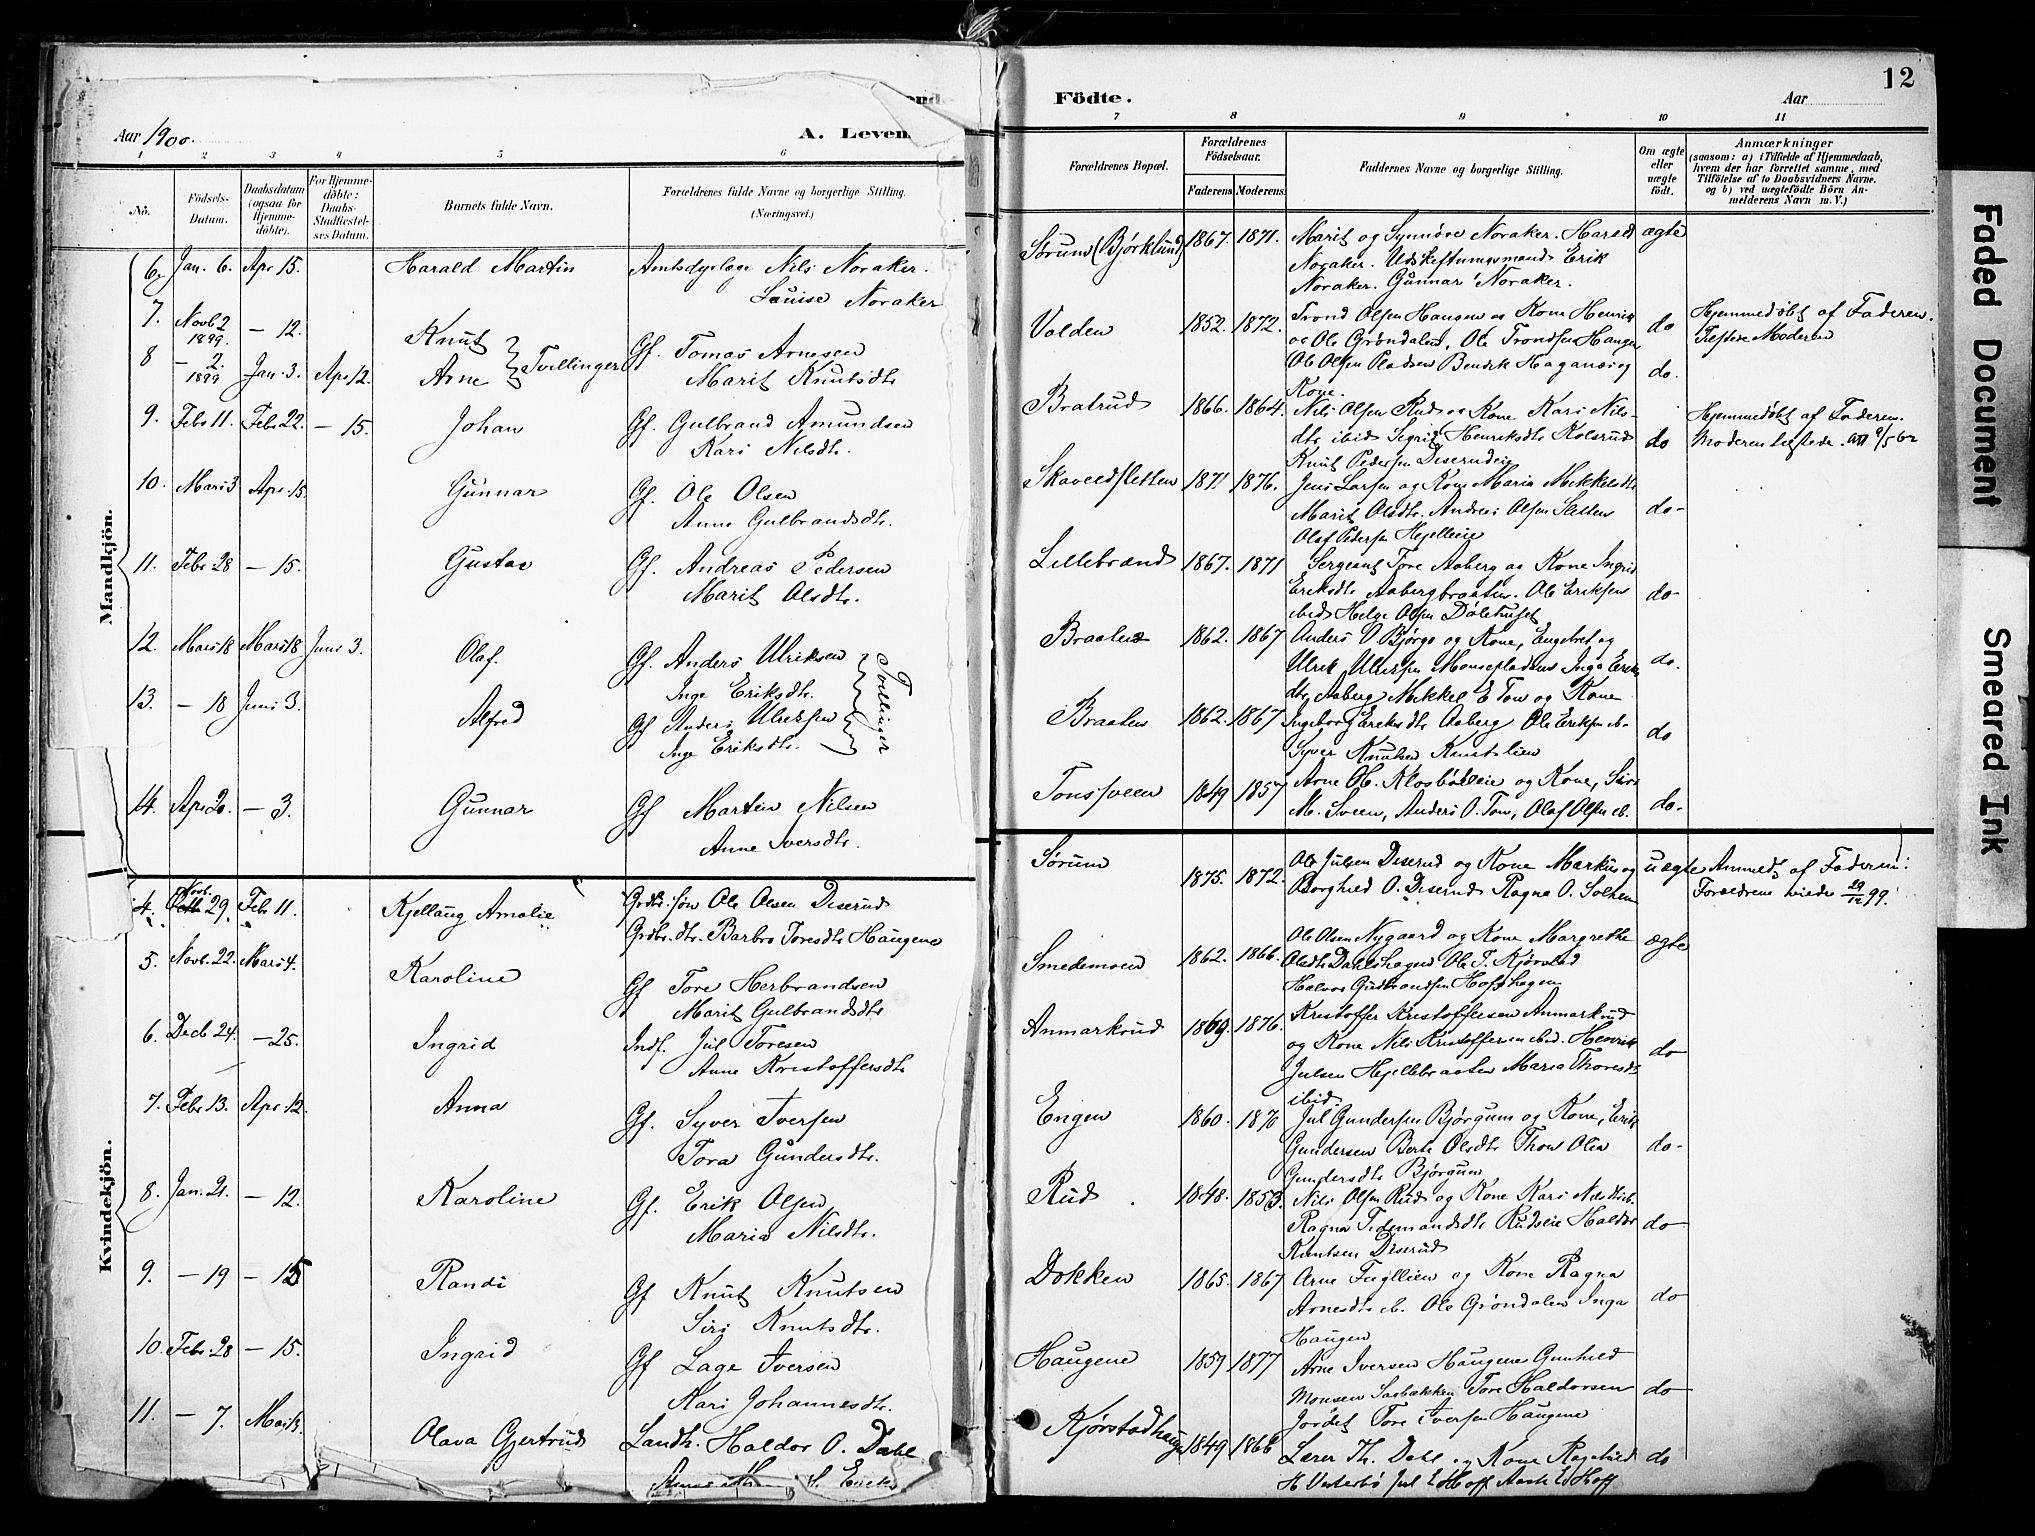 12
Födte.
Aar
Aar 1900.
A. Leven
1 2 3 4 5 6
7 8 9 10 11
No.
Födsels-Datum.
Daabsdatum (ogsaa for Hjemme-döbte).
For Hjemme-döbte: Daabs-Stadfæstel-ses Datum.
Barnets fulde Navn.
Forældrenes fulde Navne og borgerlige Stilling.
(Næringsvei.)
Forældrenes Bopæl.
Forældrenes Födselsaar.
Faderens. Moderens.
Faddernes Navne og borgerlige Stilling.
Om ægte eller uægte födt.
Anmærkninger
(saasom: a) i Tilfælde af Hjemmedaab,
hvem der har forrettet samme, med
Tilföielse af to Daabsvidners Navne.
og b) ved uægtefödte Börn An-
melderens Navn m. V.)
Mandkjön.
6. Jan. 6. Apr 15. Harald Martin Amtsdyrlæge Nils Noraker.
Louise Noraker
Sørum (Bjørklund) 1867. 1871. Marit og Synnøve Noraker. Harald ægte
Noraker. Udskiftningsmand Erik
Noraker. Gunnar Noraker.
7. Novb 2 1899. — 12. Knut
8 — 2. 1899 Jan. 3. Apr 12. Arne } Tvillinger Gf. Tomas Arnesen
Marit Knutsdtr
Volden 1852. 1872. Trond Olsen Haugen og Kone Henrik do Hjemmedøbt af Faderen.
og Ole Grøndalen, Ole Trondsen Haugen Tilstede Moderen
Ole Olsen Pladsen Bendik Haganes og do.
Kone.
9. Febr 11. Febr 22. — 15. Johan Gf. Gulbrand Amundsen
Kari Nilsdtr.
Bratrud 1866. 1864. Nils Olsen Rud og Kone Kari Nils- Hjemmedøbt af Faderen.
dtr ibid Segrid Henriksdtr Kolsrud do Moderen tilstede.
Knut Pedersen Diserudeie
10. Mars 3 Apr. 15. Gunnar Gf. Ole Olsen
Anne Gulbrandsdtr.
Skoveidsletten 1871 1876. Jens Larsen og Kone Maria Mikkelsdtr
Marit Olsdtr. Andreas Olsen Sletten do-
Olaf Pedersen Hejelleeie
11. Febr 28 — 15. Gustav Gf. Andreas Pedersen
Marit Olsdtr.
Lillebrand 1867. 1871 Sergeant Tore Aaberg og Kone Ingrid
Eriksdtr Aabergbraaten. Ole Eriksen do-
ibid Helge Olsen Dölehuset
12. Mars 18 Mars 18 Juni 3. Olaf. Gf. Anders Ulriksen
Inge Eriksdtr.
Tvillinger
Braaten 1862. 1867 Anders O Bjørgo og Kone, Engebret og
Ulrik Ulriksen Monsepladsen Inga Eriks do.
13. — 18 Juni 3. Alfred Gf Anders Ulriksen
Inge Eriksdtr.
dtr Aaberg Mikkel E Ton og Kone
Braaten 1862. 1867 Ingeborg Eriksdtr Aaberg Ole Eriksen ib. do
Syver Knutsen Knutslien
14. Apr 20. — 3. Gunnar Gf Martin Nilsen
Anne Iversdtr.
Tonssveen 1849 1857 Arne Ob. Klosbøleie og Kone, Siri
M. Sveen, Anders O. Ton, Olaf Olsen ib. do.
Kvindekjön.
4. Novb. 29. Febr 11. Kjellaug Amalie Grdbr. søn Ole Olsen Diserud
Grdbr. dtr. Barbro Toresdtr Haugene
Sørum 1875. 1872. Ole Julsen Diserud og Kone Markus og uægte Anmeldt af Faderen:
Borghild O. Diserud Ragna O. Solhem Forældrene viede 29/12 99.
5. Novb. 22. Mars 4. Karoline Gf Tore Herbrandsen
Marit Gulbrandsdtr
Smedemoen 1862. 1866. Ole Olsen Nygaard og Kone Margrethe ægte
Olsdtr Dahlshagen Ole T. Kjørstad
Halvor Gudbrandsen Hofshagen
6. Decb 24. — 25. Ingrid Indf. Jul Toresen
Anne Kristoffersdtr
Anmarkrud 1869. 1876. Kristoffer Kristoffersen Anmarkrud
og Kone Nils Kristoffersen ibid. Henrik do
Julsen Hejellebraaten Maria Thoresdtr
ibid.
7. Febr 13. Apr. 12. Anna Gf. Syver Iversen
Tora Gundersdtr.
Engen 1860. 1870 Jul Gundersen Bjørgum og Kone, Erik
Gundersen Berte Olsdtr Thon Olia do-
Gundersdtr Bjørgum
8. Jan. 21. — 12. Karoline Gf. Erik Olsen
Maria Nilsdtr.
Rud 1848. 1853. Nils Olsen Rud og Kone Kari Nilsd ib.
Ragna Tidemandsdtr Rudseie Haldor do
Knutsen Diserud
9. — 19 — 15 Randi Gf Knut Knutsen
Siri Knutsdtr.
Dokken 1865. 1867 Arne Fugllien og Kone Ragna
Arnesdtr ib. Ole Grøndalen Inga do
Haugen
10. Febr. 28 — 15. Ingrid Gf Lage Iversen
Kari Johannesdtr.
Haugene 1859 1877 Arne Iversen Haugene Gunhild
Monsen Saabakken Tore Haldorsen do
Jordet Tore Iversen Haugene
11. — 7. Olava Gjertrud Landh. Haldor O. Dahl
Kjørstadhaugen 1849 1866 Lærer Th. Dahl og Kone Ragnhild do
H Vesterbø Jul E Hoff Aaste E Hoff
Faded Document
Smeared Ink